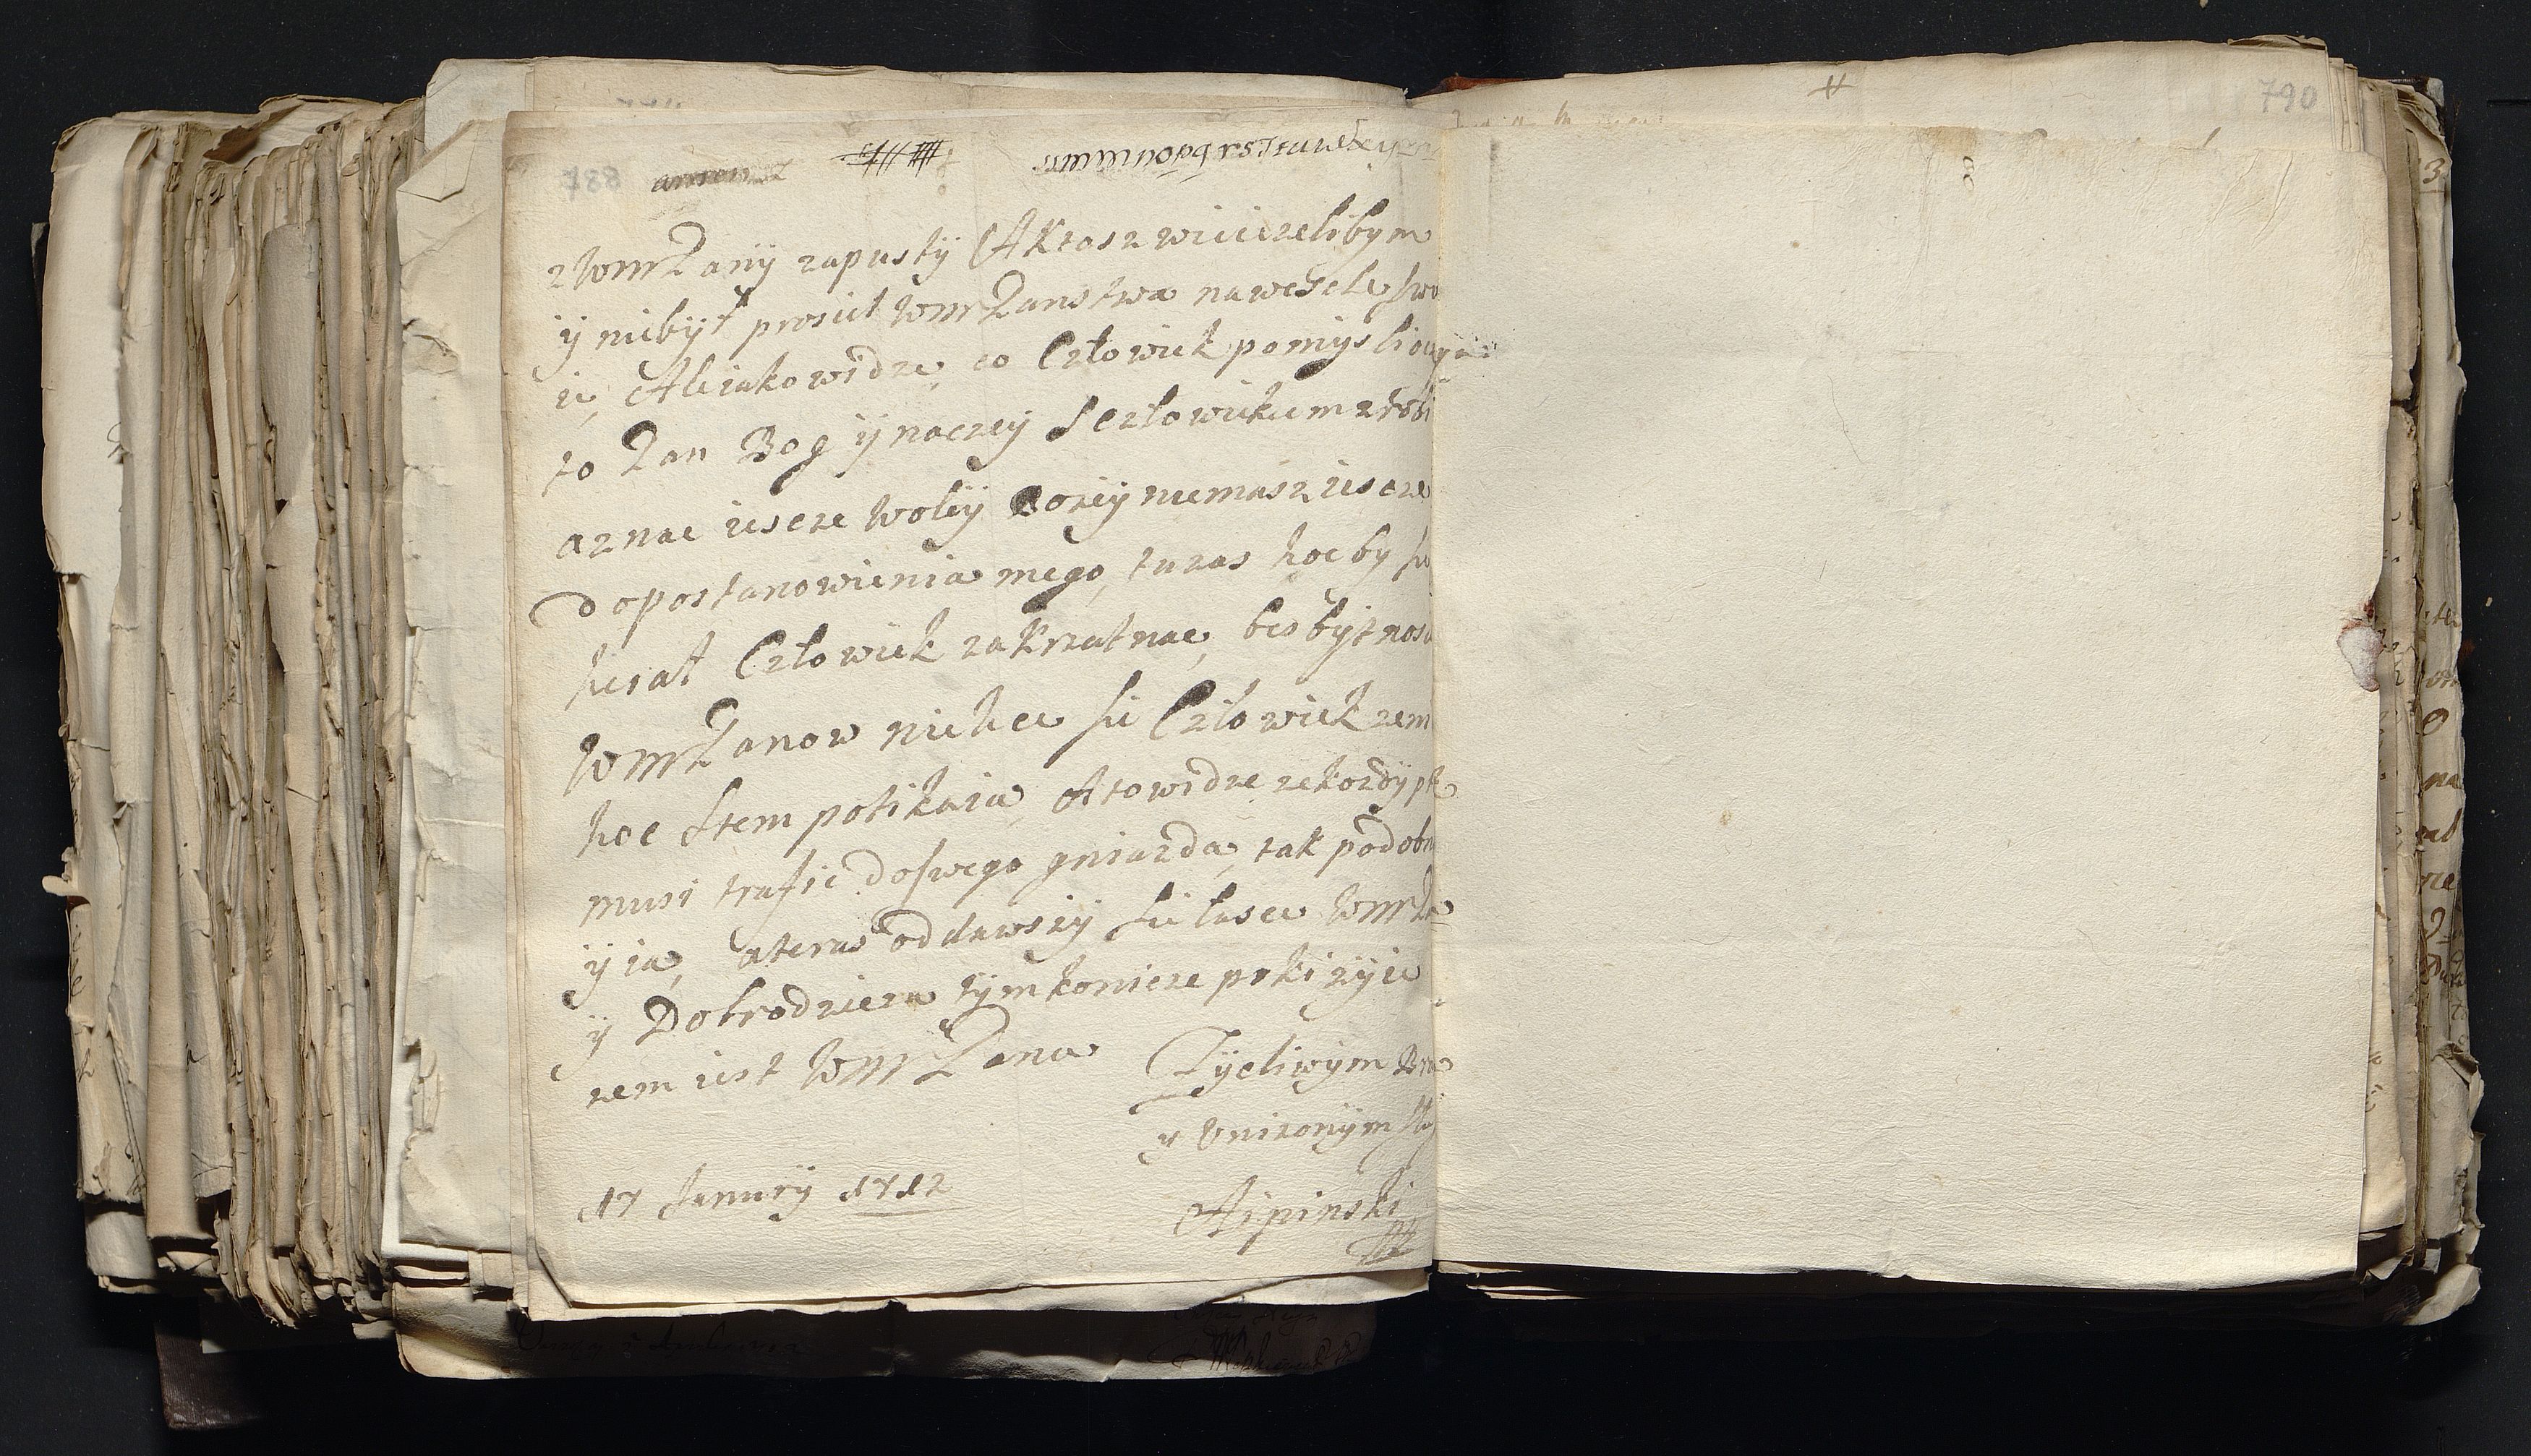 788
790
zWmPany zapusty A Ktosz wiieizelibym
y niebył prosiel WmPanstwa nawesele swo
ie, Ale iako widze, co Człowiek pomysli
to Pan Bog ynaczey sczłowiekiem zrobi
aznac iescze Woley Bozey niemasz iescze
do postanowienia mego, turas hoc by sie
hciał Człowiek zakrzatnac, bes bytnosci
WmPanow niehce sie Człowiek zem
hoc stem potikaia, A to widze ze kozdy pt
musi trafic do swego gniazda, tak podobn
y ia, a teras oddawszy sie łasce WmPa
y Dobrodzieia tym koncze poki zyie
zem iest WmPana Zycliwym Bra
y Unizonym Slu
17 January 1712
Lipinski